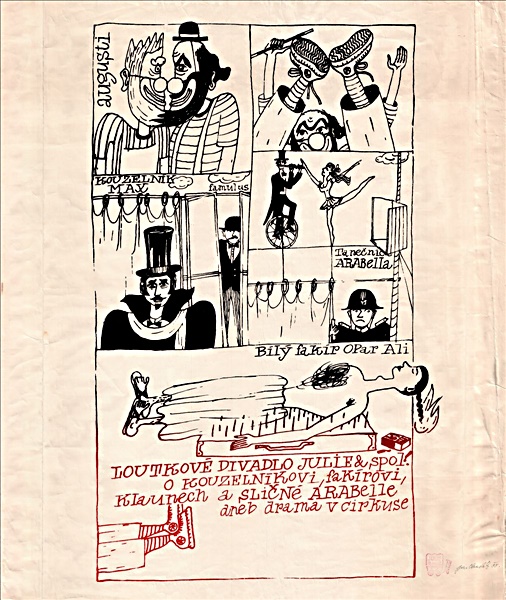 augusti
KOUZELNÍK
MAX
famulus
Tanečnice
ARABella
Bílý fakír OPAR Ali
LOUTKOVÉ DIVADLO JULIE & spol.
O KOUZELNÍKOVI, fakírovi,
Klaunech a SLIČNÉ ARABelle
aneb drama v cirkuse